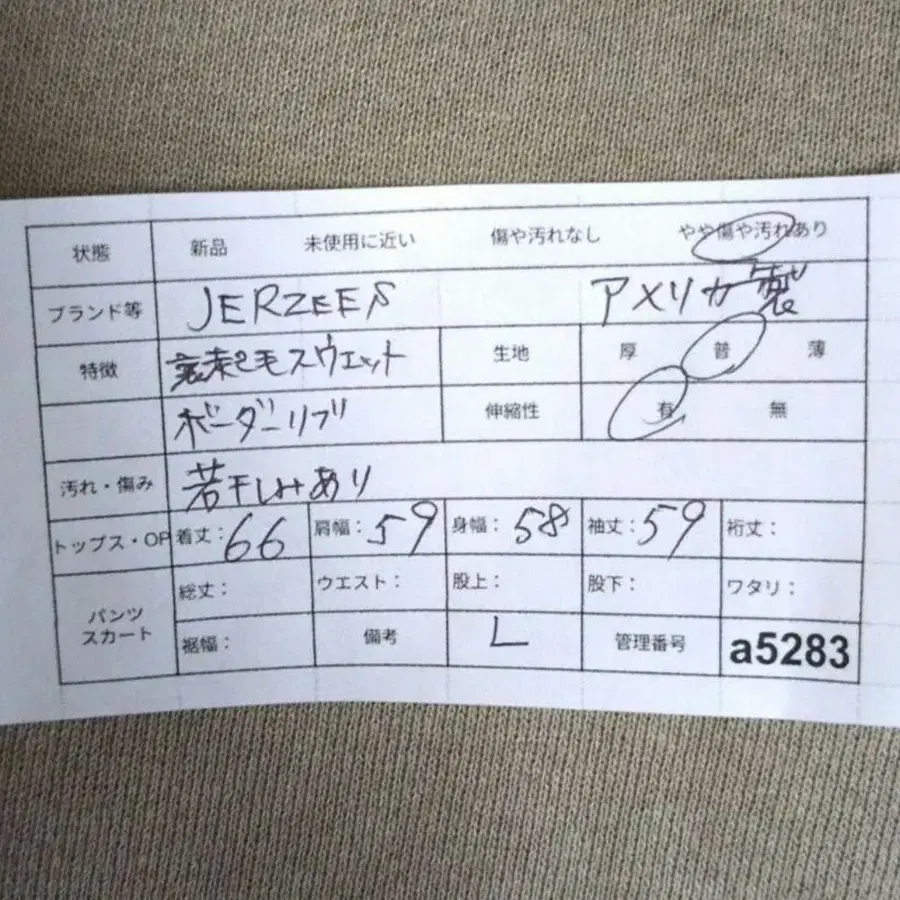 状態 新品 未使用に近い 傷や汚れなし やや傷や汚れあり
ブランド等 JERZEES アメリカ製
特徴 裏起毛スウェット 生地 厚 普 薄
ボーダーリブ 伸縮性 有 無
汚れ・傷み 若干しみあり
トップス・OP 着丈:66 肩幅:59 身幅:58 袖丈:59 裄丈:
パンツ スカート 総丈: ウエスト: 股上: 股下: ワタリ:
裾幅: 備考 L 管理番号 a5283